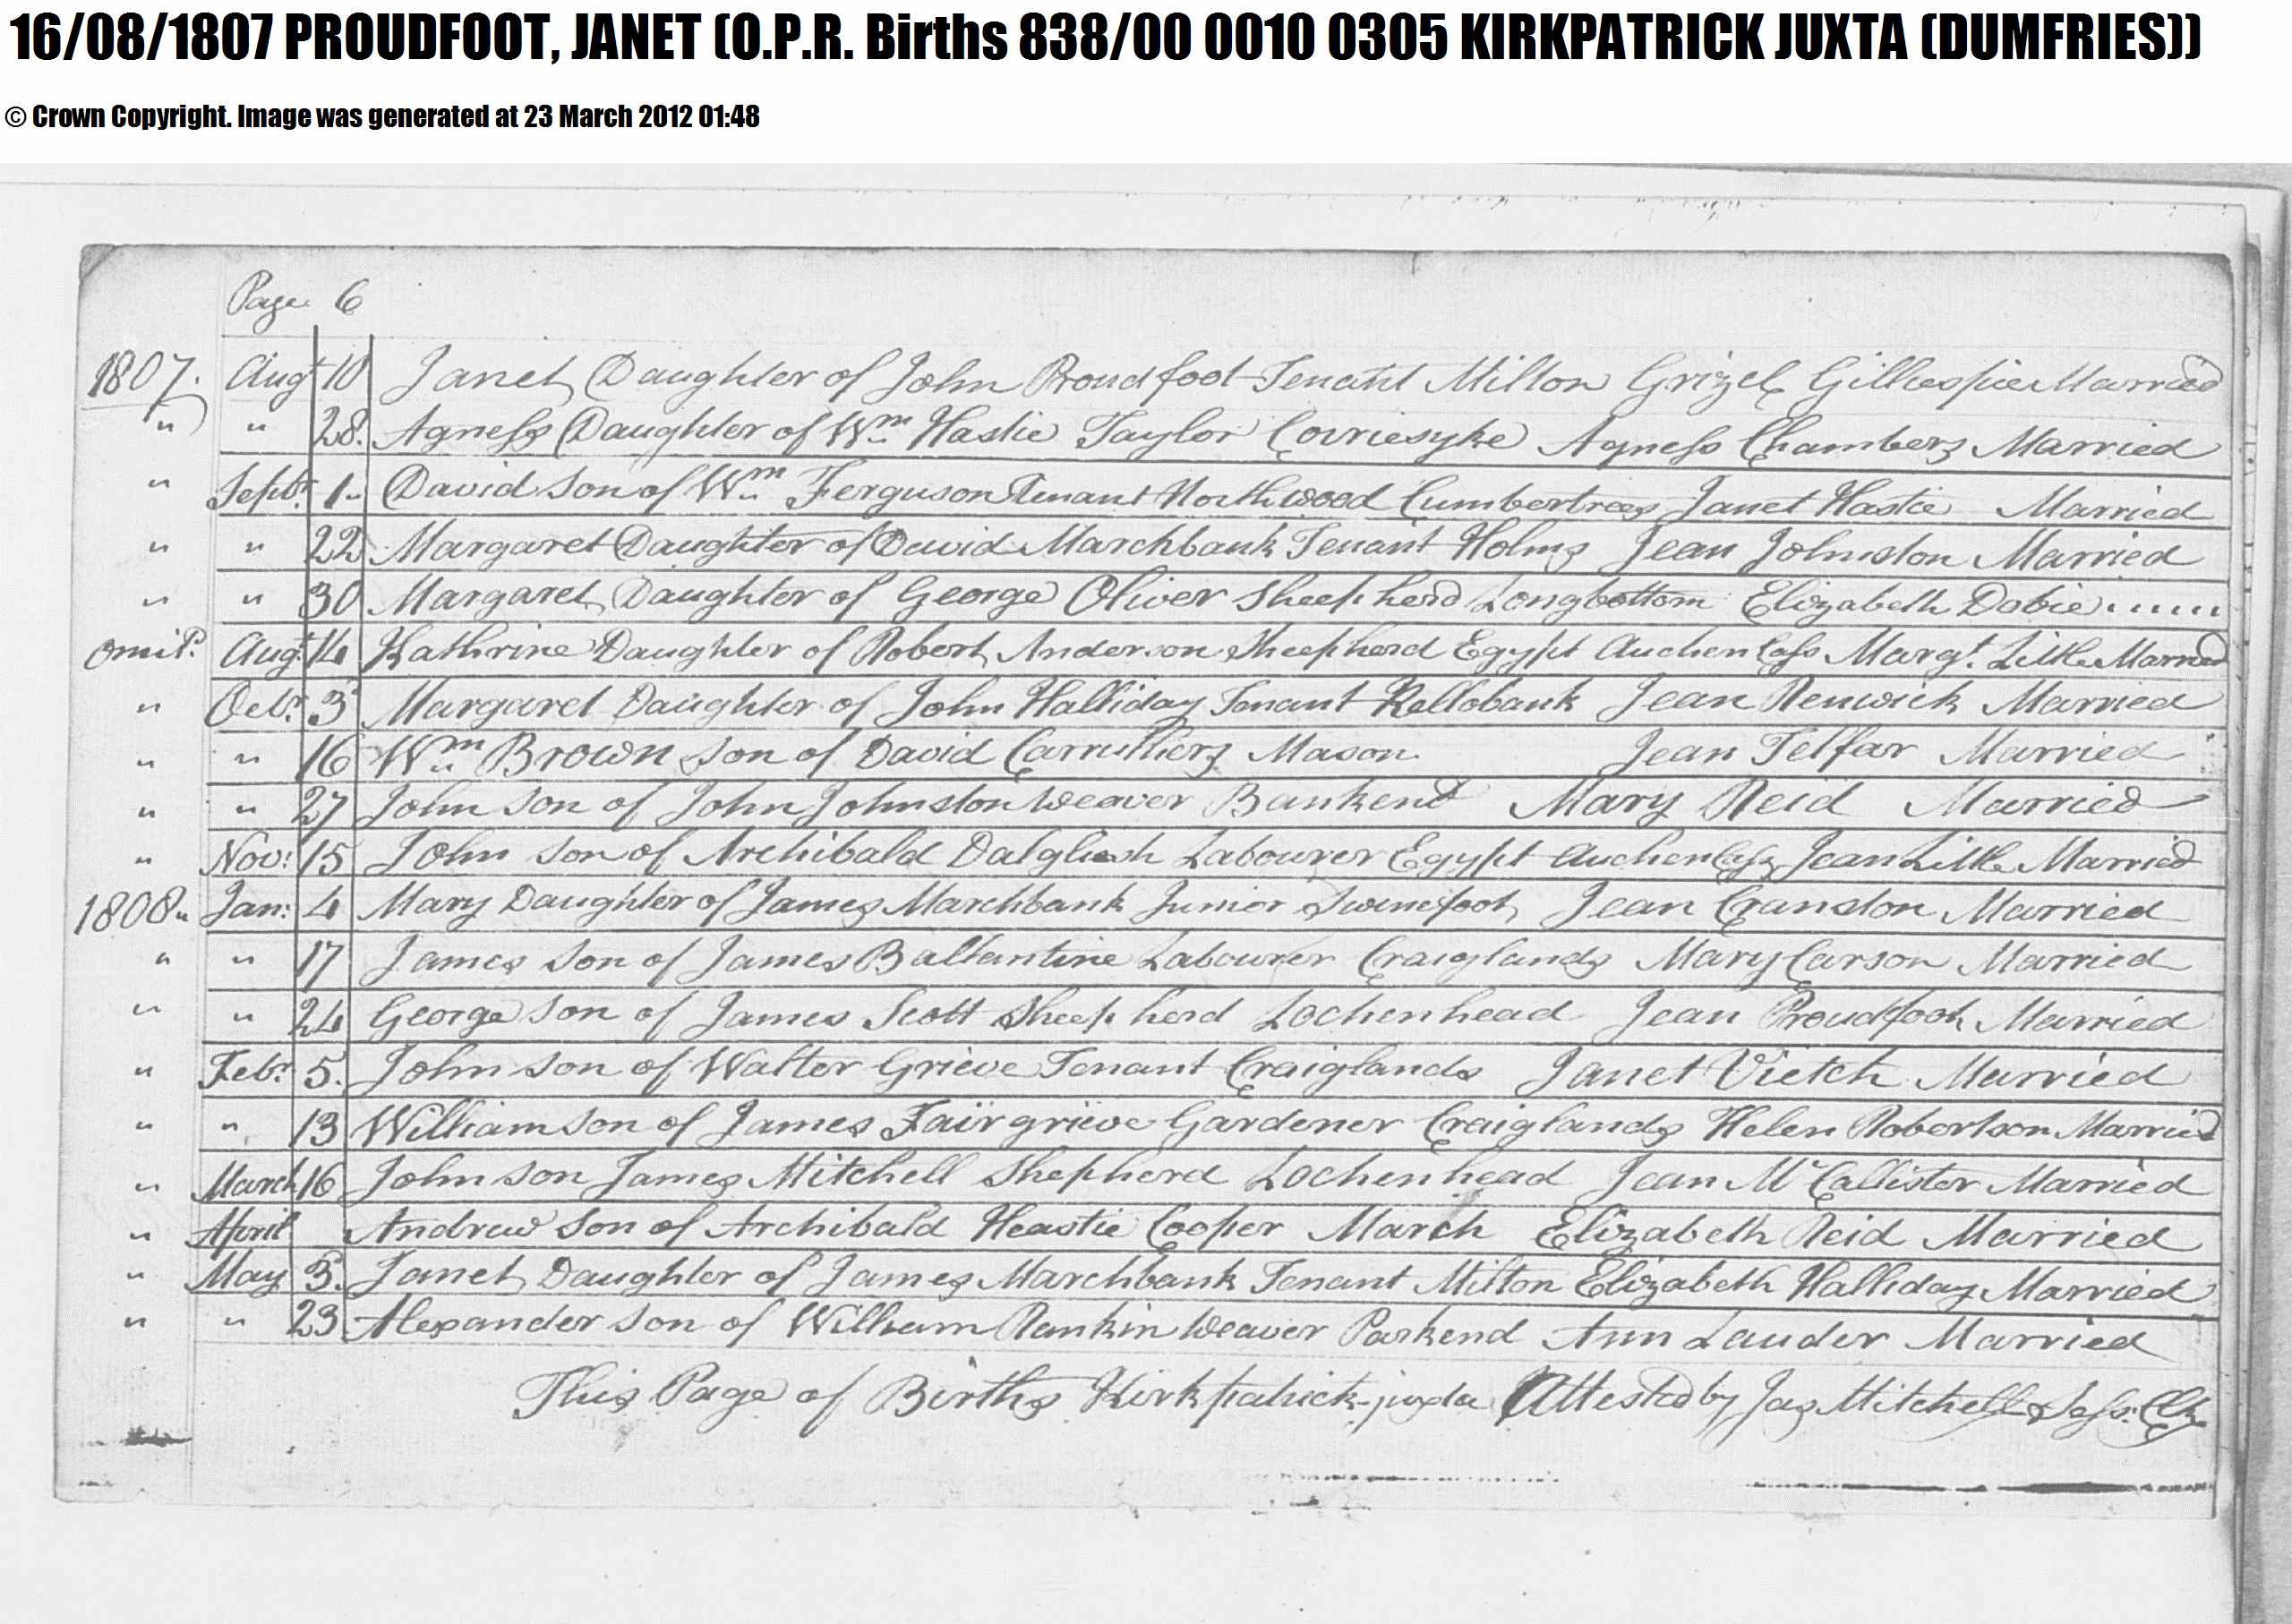 16/08/1807 PROUDFOOT, JANET (O.P.R. Births 838/00 0010 0305 KIRKPATRICK JUXTA (DUMFRIES))
© Crown Copyright. Image was generated at 23 March 2012 01:48
Page 6
1807. Augt Janet Daughter of John Proudfoot Tenant Milton Grizel Gillespie Married
" " 28. Agness Daughter of Wm Hastie Taylor Corriesyke Agness Chambers Married
" Septr 1 David Son of Wm Ferguson Tenant Northwood Cumbertrees Janet Hastie Married
" " 22 Margaret Daughter of David Marchbank Tenant Holms Jean Johnston Married
" " 30 Margaret Daughter of George Oliver Sheepherd Longbottom Elizabeth Dobie " " "
Omitd Augt 14 Kathrine Daughter of Robert Anderson Sheepherd Egypt Auchen Cass Margt Little Married
" Octr 3 Margaret Daughter of John Halliday Tenant Kellobank Jean Renwick Married
" " 16 Wm Brown son of David Carruthers Mason Jean Telfar Married
" " 27 John Son of John Johnston Weaver Bankend Mary Reid Married
" Nov: 15 John Son of Archibald Dalgliesh Labourer Egypt Auchen Cass Jean Little Married
1808 " Jan: 4 Mary Daughter of James Marchbank Junior Swinefoot Jean Cranston Married
" " 17 James Son of James Ballantine Labourer Craiglands Mary Carson Married
" " 24 George Son of James Scott Sheepherd Lochenhead Jean Proudfoot Married
" Febr 5. John Son of Walter Grieve Tenant Craiglands Janet Vietch Married
" " 13 William Son of James Fairgrieve Gardener Craiglands Helen Robertson Married
" March 16 John Son James Mitchell Shepherd Lochenhead Jean McCallister Married
" April Andrew Son of Archibald Heastie Cooper March Elizabeth Reid Married
" May 3. Janet Daughter of James Marchbank Tenant Milton Elizabeth Halliday Married
" " 23 Alexander Son of William Rankin Weaver Parkend Ann Lauder Married
This Page of Births Kirkpatrick-juxta Attested by Jas Mitchell Sess: Clk